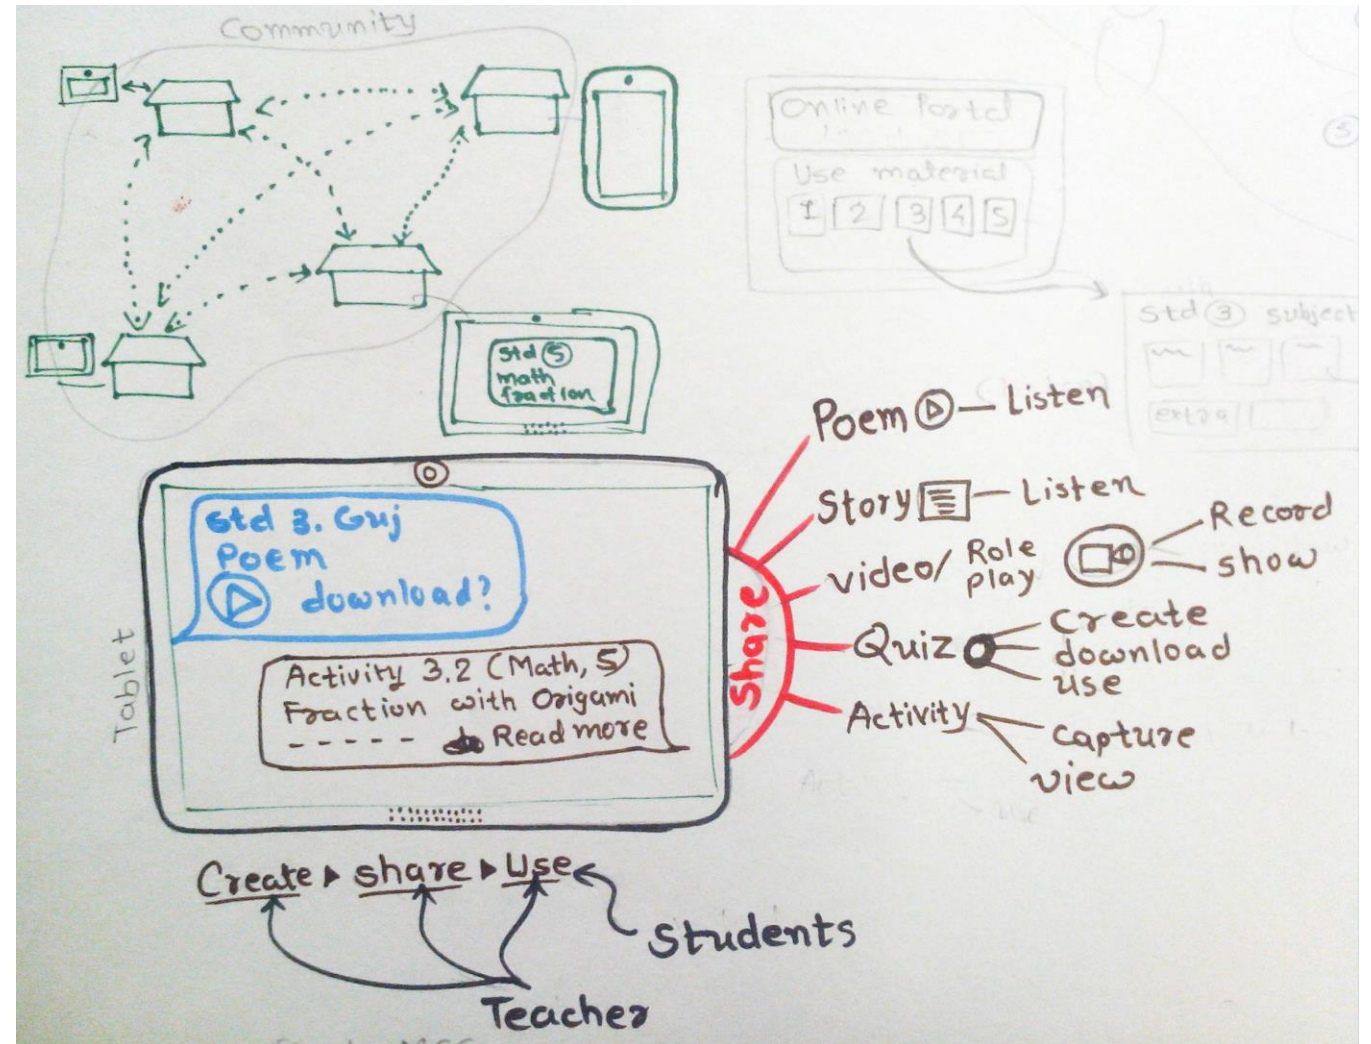 Community
Online Portal
Use material
1 2 3 4 5
5
Std 3 subject
extra
std 5
math
fraction
Std 3. Guj
Poem
download?
Activity 3.2 (Math, 5)
Fraction with Origami
----- Read more
Tablet
Share
Poem - Listen
Story - Listen
video/ Role play
Record
show
Quiz
create
download
use
Activity
capture
view
Create ▸ share ▸ Use
Students
Teacher